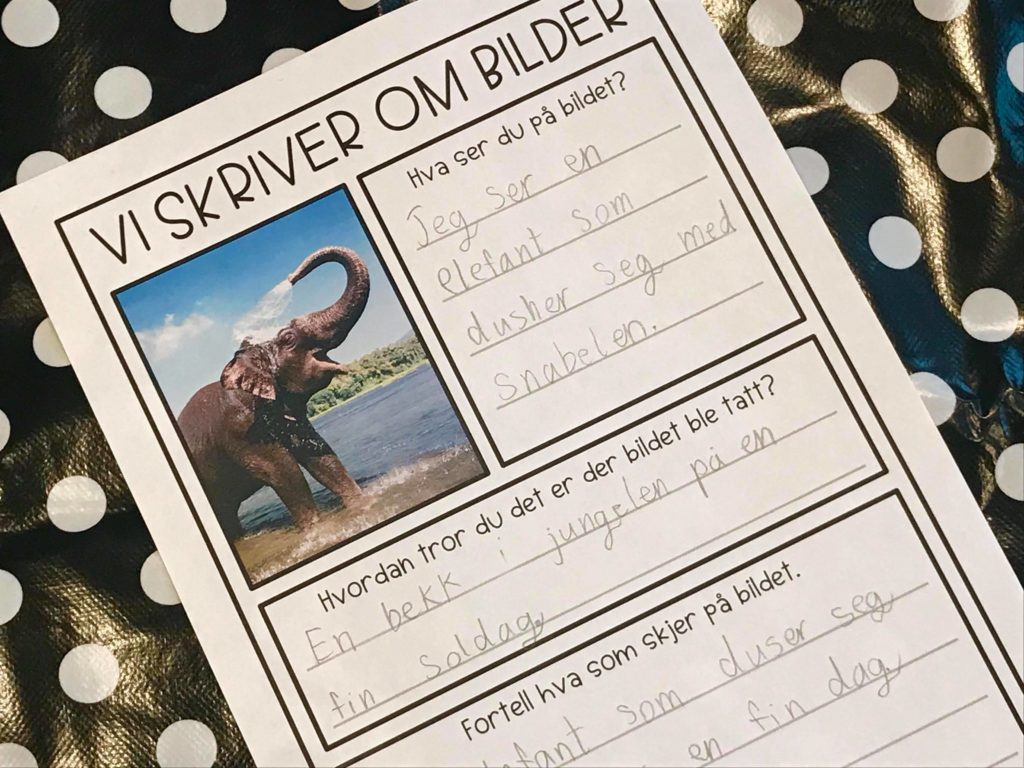 VI SKRIVER OM BILDER
Hva ser du på bildet?
Jeg ser en
elefant som
dusher seg med
snabelen.
Hvordan tror du det er der bildet ble tatt?
En bekk i jungelen på en
fin soldag
Fortell hva som skjer på bildet.
som duser seg
en fin dag